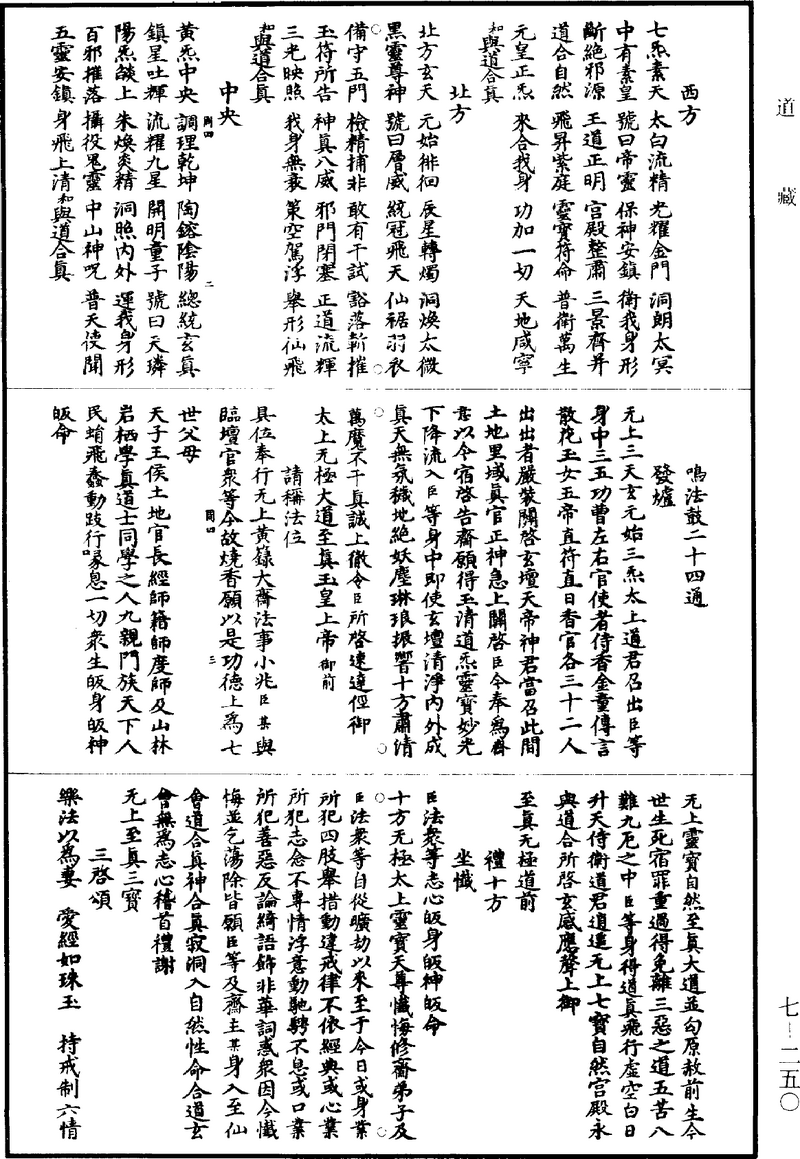 道藏
西方
七炁素天　太白流精　光耀金門　洞朗太冥
中有素皇　號曰帝靈　保神安鎮　衛我身形
斷絕邪源　王道正明　宮殿整肅　三景齊并
道合自然　飛昇紫庭　靈寶符命　普衛萬生
元皇正炁　來合我身　功加一切　天地咸寧
和與道合真
北方
北方玄天　元始徘徊　辰星轉燭　洞煥太微
黑靈尊神　號曰層威　統冠飛天　仙裾羽衣
備守五門　檢精捕非　敢有干試　豁落斬摧
玉符所告　神真八威　邪門閉塞　正道流輝
三光映照　我身無衰　策空駕浮　舉形仙飛
和與道合真
中央
黃炁中央　調理乾坤　陶鎔陰陽　總統玄真
鎮星吐輝　流耀九星　開明童子　號曰天璘
陽炁燄上　朱煥炎精　洞照內外　運我身形
百邪摧落　攝役鬼靈　中山神呪　普天使聞
五靈安鎮　身飛上清　和與道合真
鳴法鼓二十四通
發爐
无上三天玄元始三炁太上道君召出臣等
身中三五功曹左右官使者侍香金童傳言
散花玉女五帝直符直日香官各三十二人
出出者嚴裝關啓玄壇天帝神君當召此間
土地里域真官正神急上關啓臣今奉為齋
意以今宿啓告齋願得玉清道炁靈寶妙光
下降流入臣等身中即使玄壇清淨內外成
真天無氛穢地絕妖塵琳琅振響十方肅清
萬魔不干真誠上徹令臣所啓速達俓御
太上无極大道至真玉皇上帝御前
請稱法位
具位奉行无上黃籙大齋法事小兆臣某與
臨壇官衆等今故燒香願以是功德上為七
世父母
天子王侯土地官長經師籍師度師及山林
岩栖學真道士同學之人九親門族天下人
民蜎飛蠢動跂行喙息一切衆生皈身皈神
皈命
无上靈寶自然至真大道並匄原赦前生今
世生死宿罪重過得免離三惡之道五苦八
難九厄之中臣等身得道真飛行虛空白日
升天侍衛道君逍遥无上七寶自然宮殿永
與道合所啓玄感應聲上御
至真无極道前
禮十方
坐懺
臣法衆等志心皈身皈神皈命
十方无極太上靈寶天尊懺悔修齋弟子及
臣法衆等自從曠劫以來至于今日或身業
所犯四肢舉措動違戒律不依經典或心業
所犯志念不專情浮意動馳騁不息或口業
所犯善惡反論綺語飾非華詞惑衆因今懺
悔並乞蕩除皆願臣等及齋主某身入至仙
會道合真神合真寂洞入自然性命合道玄
會無為志心稽首禮謝
无上至真三寶
三啓頌
樂法以為妻　愛經如珠玉　持戒制六情
七—二五〇